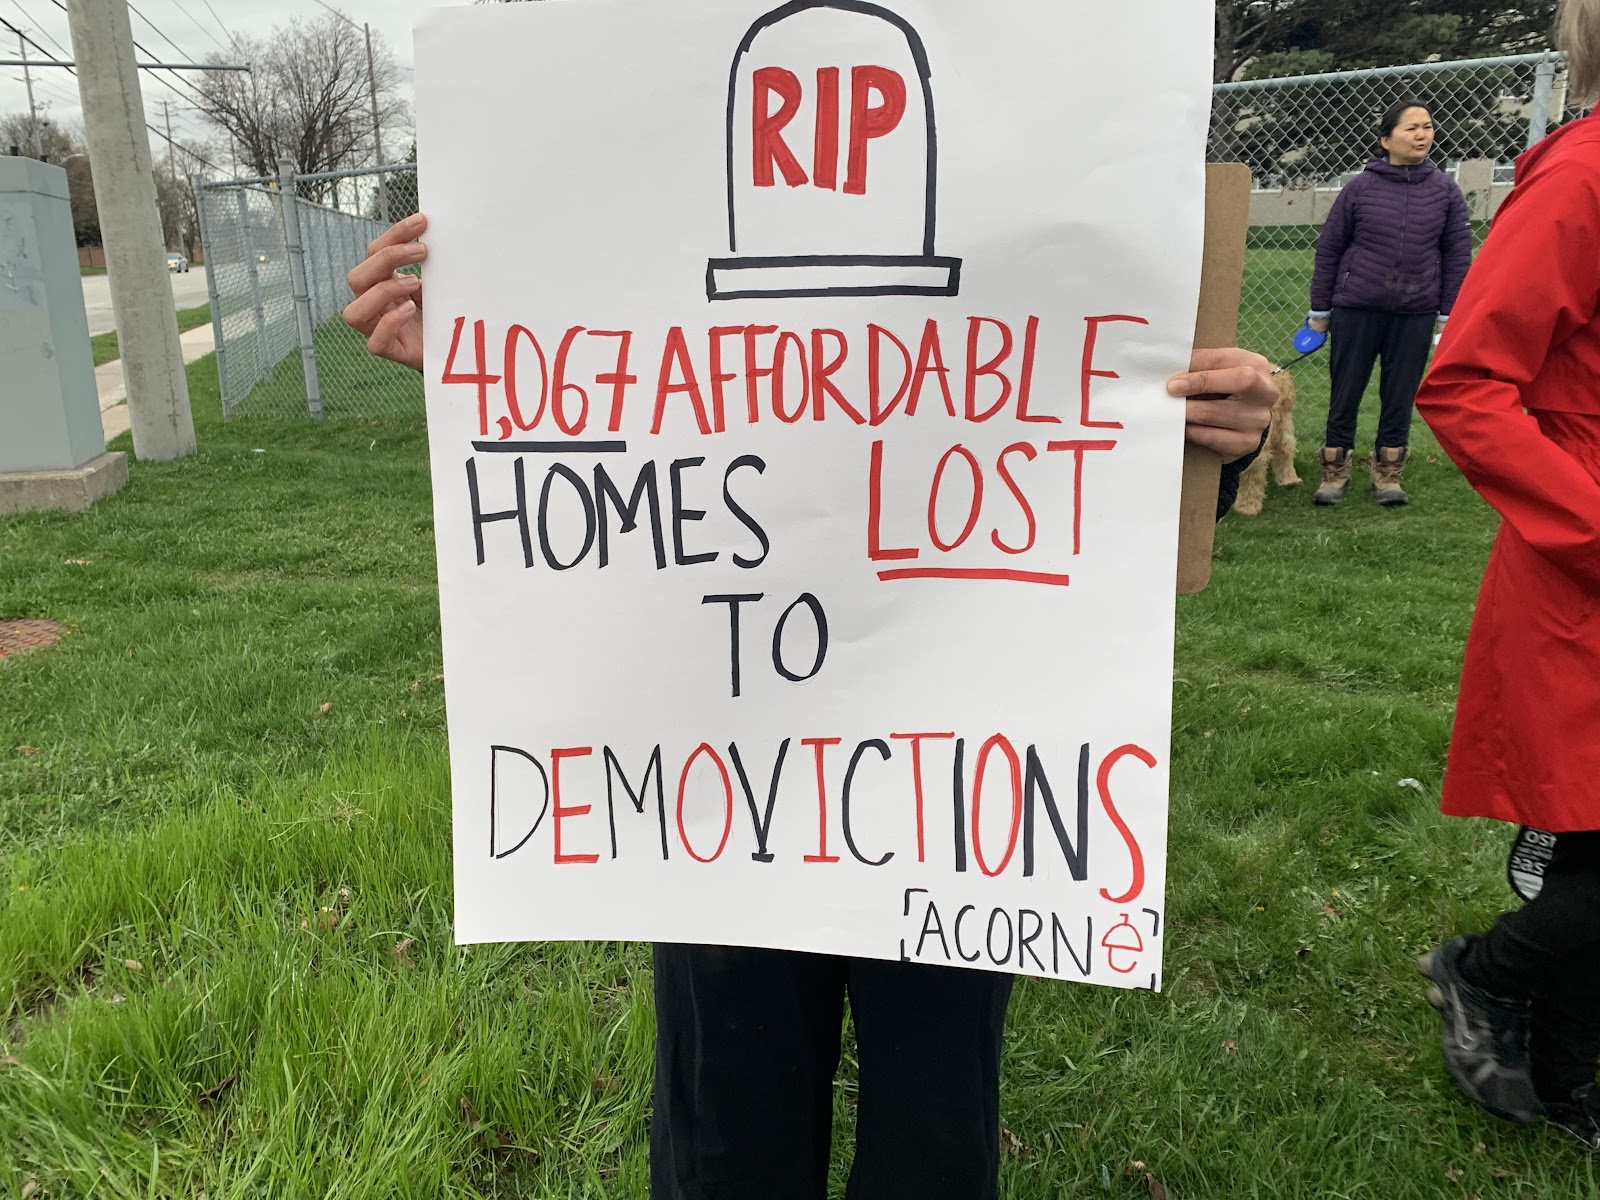 RIP
4,067 AFFORDABLE
HOMES LOST
TO
DEMOVICTIONS
[ACORN]